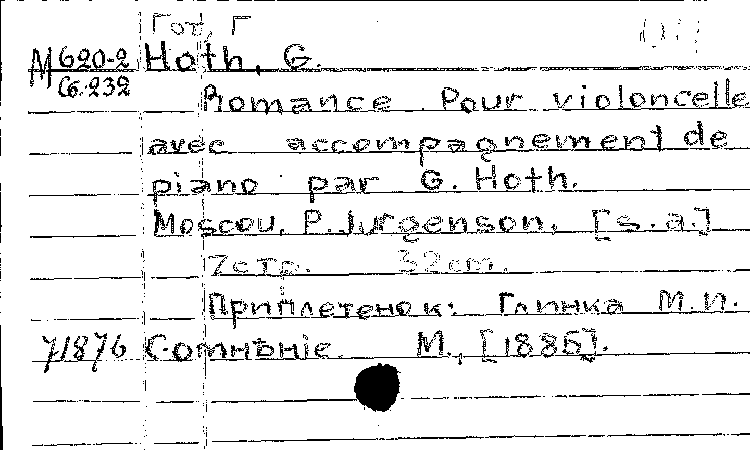 Гот, Г
М620-2 Hoth, G.
Сб.232
Romance. Pour violoncelle
avec accompagnement de
piano par G. Hoth.
Moscou, P. Jurgenson, [s.a.]
7 стр. 32 cm.
Приплетенок: Глинка М.И.
71876 Сомнѣніе. М., [1885].